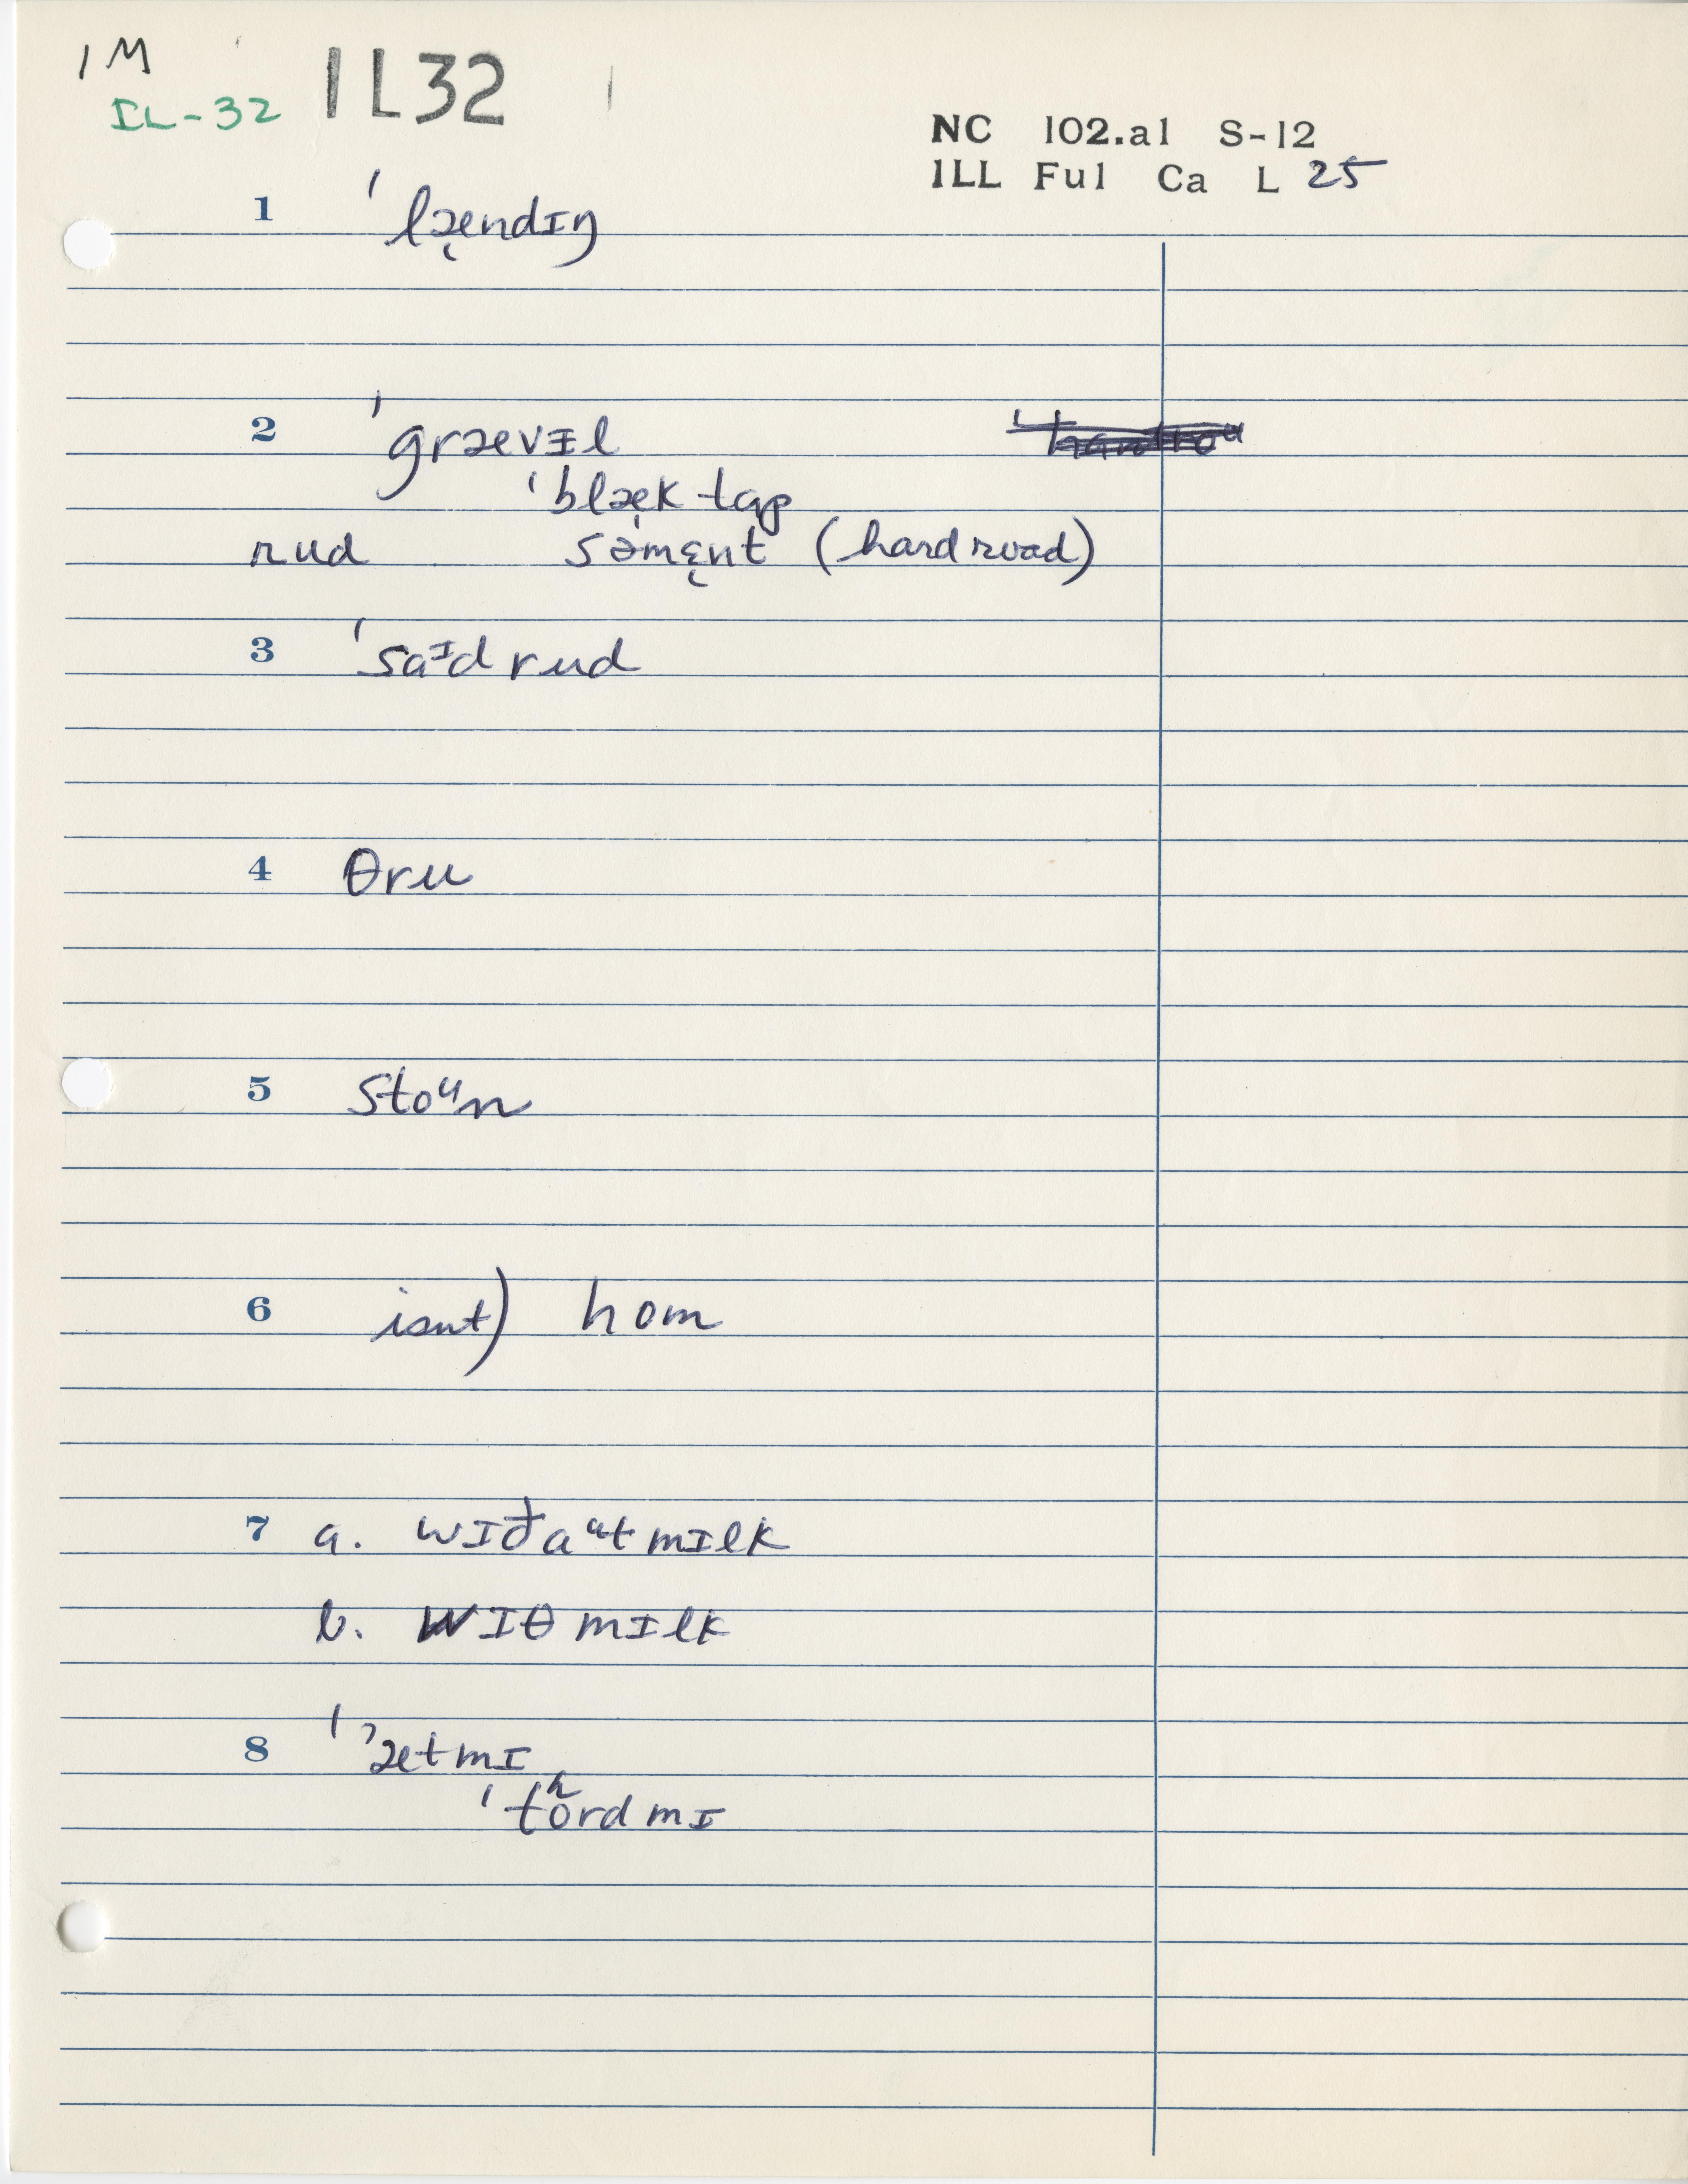 1M
IL-32 IL32
NC 102.a1 S-12
ILL Ful Ca L 25
1 ˈlæ̨ndɪŋ
2 ˈgrævɪl
ˈblæ̨ktɑp
rud səmɛ̨nt (hard road)
3 ˈsaᶦdrud
4 θru
5 stoᵘn
6 isnt) hom
7 a. wɪðaᵘtmɪlk
b. wɪθ mɪlk
8 ˈʔætmɪ
ˈtʰordmɪ